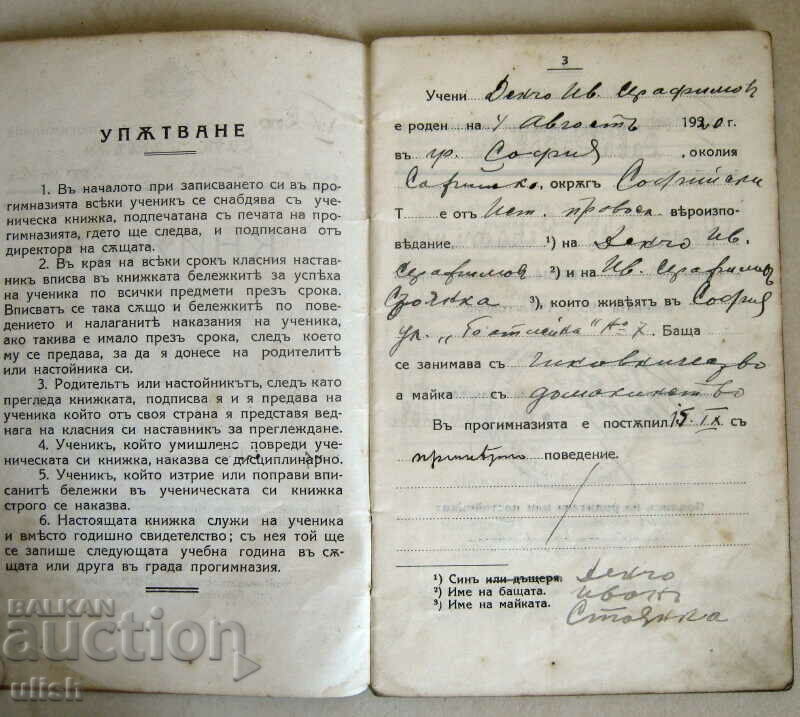 УПѪТВАНЕ
1. Въ началото при записването си въ про-
гимназията всѣки ученикъ се снабдява съ уче-
ническа книжка, подпечатана съ печата на про-
гимназията, гдето ще следва, и подписана отъ
директора на сѫщата.
2. Въ края на всѣки срокъ класния настав-
никъ вписва въ книжката бележките за успѣха
на ученика по всички предмети презъ срока.
Вписватъ се така сѫщо и бележките по пове-
дението и налаганитѣ наказания на ученика,
ако такива е имало презъ срока, следъ което
му се предава, за да я донесе на родителитѣ
или настойника си.
3. Родительтъ или настойникътъ, следъ като
прегледа книжката, подписва я и я предава на
ученика който отъ своя страна я представя вед-
нага на класния си наставникъ за преглеждане.
4. Ученикъ, който умишлено повреди уче-
ническата си книжка, наказва се дисциплинарно.
5. Ученикъ, който изтрие или поправи впи-
санитѣ бележки въ ученическата си книжка
строго се наказва.
6. Настоящата книжка служи на ученика
и вмѣсто годишно свидетелство; съ нея той ще
се запише следующата учебна година въ сѫ-
щата или друга въ града прогимназия.
3
Учени Денчо Ив. Серафимов
е роденъ на 4 Августъ 1920 г.
въ гр. София, околия
Софийска, окрѫгъ Софийски
Т е отъ Ист. правосл. вѣроизпо-
ведание, ¹) на Денчо Ив.
Серафимов ²) и на Ив. Серафимов
Стоянка ³), които живѣятъ въ София
ул. № Баща
се занимава съ чиновничество
а майка съ домакинство
Въ прогимназията е постѫпилъ 15.IX съ
примѣрно поведение.
¹) Синъ или дъщеря. Денчо
²) Име на бащата. Иванъ
³) Име на майката. Стоянка
BALKAN
auction
ulish